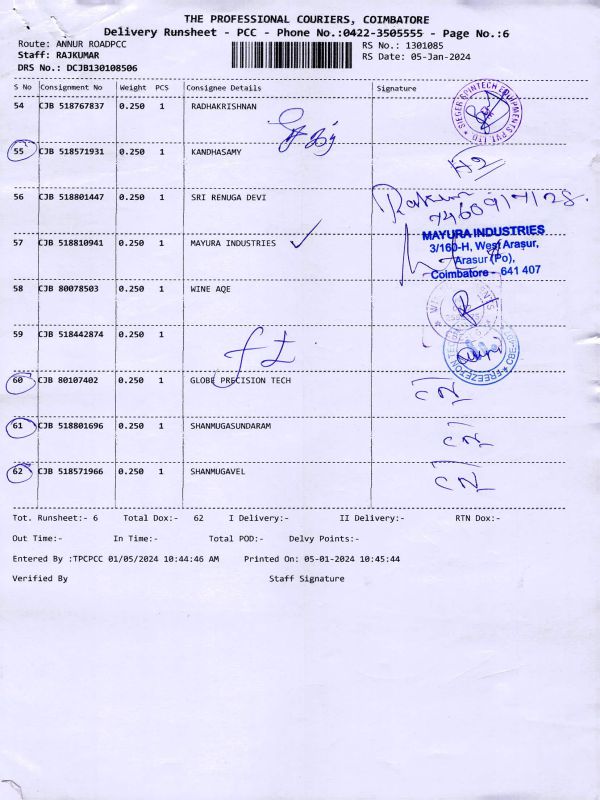 THE PROFESSIONAL COURIERS, COIMBATORE
Delivery Runsheet - PCC - Phone No.:0422-3505555 - Page No.:6
Route: ANNUR ROADPCC RS No.: 1301085
Staff: RAJKUMAR RS Date: 05-Jan-2024
DRS No.: DCJB130108506
S No Consignment No Weight PCS Consignee Details Signature
54 CJB 518767837 0.250 1 RADHAKRISHNAN
55 CJB 518571931 0.250 1 KANDHASAMY
56 CJB 518801447 0.250 1 SRI RENUGA DEVI
57 CJB 518810941 0.250 1 MAYURA INDUSTRIES
MAYURA INDUSTRIES
3/160-H, West Arasur,
Arasur (Po),
Coimbatore - 641 407
58 CJB 80078503 0.250 1 WINE AQE
59 CJB 518442874 0.250 1
60 CJB 80107402 0.250 1 GLOBE PRECISION TECH
CN
61 CJB 518801696 0.250 1 SHANMUGASUNDARAM
CN
62 CJB 518571966 0.250 1 SHANMUGAVEL
CN
Tot. Runsheet:- 6 Total Dox:- 62 I Delivery:- II Delivery:- RTN Dox:-
Out Time:- In Time:- Total POD:- Delvy Points:-
Entered By :TPCPCC 01/05/2024 10:44:46 AM Printed On: 05-01-2024 10:45:44
Verified By Staff Signature